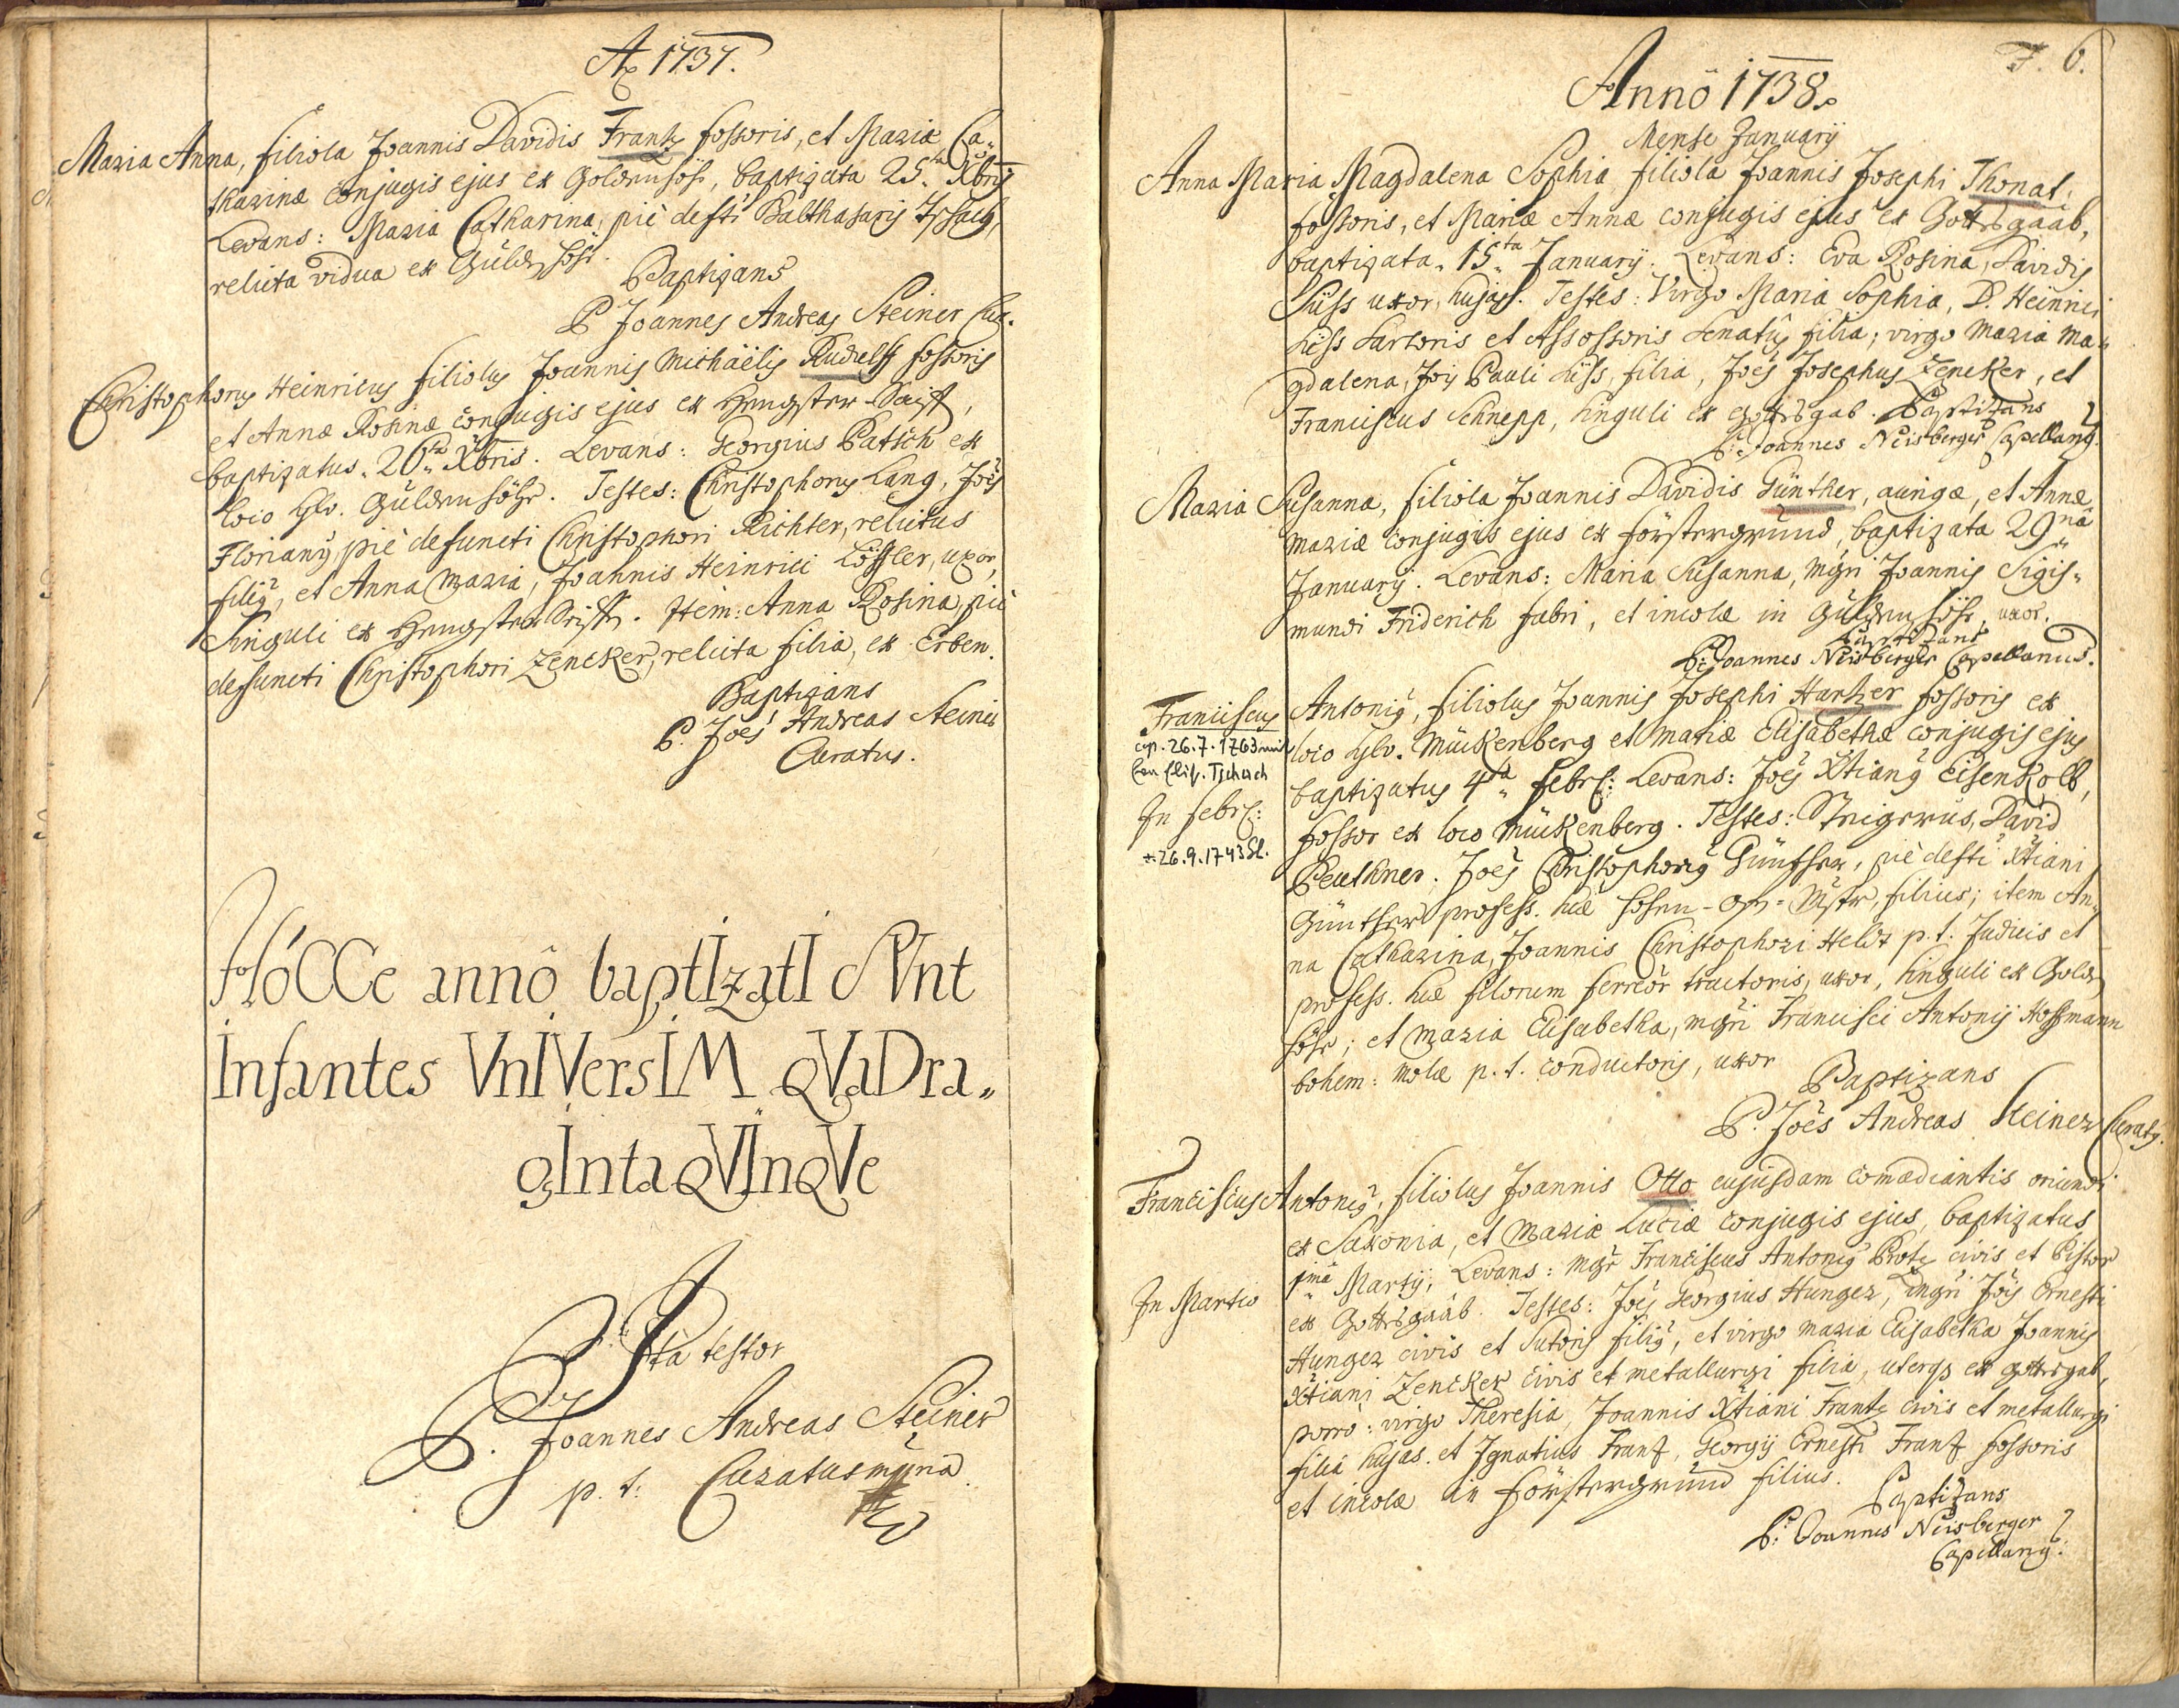 Aō 1737.
Maria Anna, filiola Joannis Davidis Frantz fossoris, et Mariæ Ca-
tharinæ conjugis ejus ex Goldenhöh, baptizata 25ta Xbris
Levans: Maria Catharina, piè defti Balthasaris
relicta vidua ex Güldenhöh.
Baptizans
P Joannes Andreas Steiner Cur.
Christophorus Heinricus filiolus Joannis Michäelis Rudolff fossoris
et Annæ Rosinæ conjugis ejus ex Hengster
baptizatus 26ta Xbris. Levans: Georgius Patsch ex
loco glo. Güldenhöhe. Testes: Christophorus Lang, Joës
Florianus piè defuncti Christophori Richter, relictus
filius, et Anna Maria, Joannis Heinrici Löffler, uxor,
singuli ex Hengster. Item: Anna Rosina, piè
defuncti Christophori Zencker, relicta filia, ex Erben.
Baptizans
P. Joës Andreas Steiner
Curatus.
HóCCe annô baptIzatI sVnt
Infantes VnIVersIM qVaDra-
gIntaqVInqVe
Ita testor
P. Joannes Andreas Steiner
p. t. Curatus
F. 6.
Annô 1738.
Mense Januarij
Anna Maria Magdalena Sophia filiola Joannis Josephi Thonat,
fossoris, et Mariæ Annæ conjugis ejus ex Gottsgaab,
baptizata 15ta Januarij. Levans: Eva Rosina, Davidis
Süss uxor, hujass. Testes: Virgo Maria Sophia, D. Heinrici
Süss Sartoris et Assossoris Senatus filia; virgo Maria Ma-
gdalena, Jois Pauli Süss, filia, Joës Josephus Zencker, et
Franciscus Schnepp, singuli ex Gottsgab. Baptizans
P. Joannes Neisberger Capellanus.
Maria Susanna, filiola Joannis Davidis Günther, aurigæ, et Annæ
Mariæ conjugis ejus ex Förstergrund, baptizata 29na
Januarij. Levans: Maria Susanna, mgri Joannis Sigis-
mundi Friderich fabri, et incolæ in Güldenhöhe, uxor.
Baptizans
P: Joannes Neisberger Capellanus.
Franciscus Antonius, filiolus Joannis Josephi Hartzer fossoris ex
cop. 26.7.1763 mit
Elis. Tschech
In Febr:
+ 26.9.1743
loco glo. Mückenberg et Mariæ Elisabethæ conjugis ejus
baptizatus 4ta Febr: Levans: Joës Xtianus Eisenkolb,
fossor ex loco Mückenberg. Testes: Steigerus, David
Peuthner. Joës Christophorus Günther, piè defti Xtiani
Günther profess. huc filius; item An-
na Catharina, Joannis Christophori Held p. t. Judicis et
profess. huc filorum ferreor tractoris, uxor, singuli ex Golden
höhe; et Maria Elisabetha, mgri Francisci Antonij Hoffmann
bohem: molæ p. t. conductoris, uxor
Baptizans
P. Joës Andreas Steiner Curatus.
Franciscus Antonius, filiolus Joannis Otto cujusdam comædiantis oriundi
ex Saxonia, et Mariæ Luciæ conjugis ejus, baptizatus
In Martio
1ma Martij, Levans: mgr Franciscus Antonius Protz civis et Pistor
ex Gottsgaab. Testes: Joës Georgius Hunger, mgri Jois Ernesti
Hunger civis et Sutoris filius, et virgo Maria Elisabetha Joannis
Xtiani Zencker civis et metallurgi filia, uterqs ex gottsgab,
porro: virgo Theresia, Joannis Xtiani Frantz civis et metallurgi
filia hujas. et Ignatius Frantz, Georgij Ernesti Frantz fossoris
et incolæ in Förstergrund filius.
Baptizans
P: Joannes Neisberger
Capellanus.